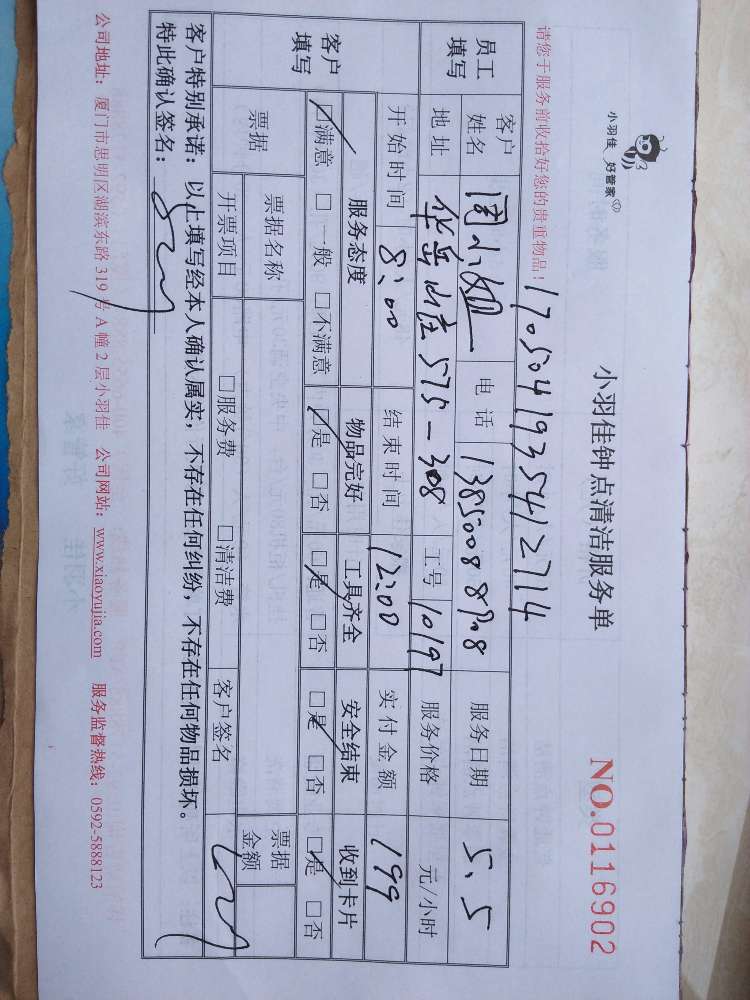 小羽佳 好管家
小羽佳钟点清洁服务单
NO.0116902
请您于服务前收拾好您的贵重物品!
1705041935412714
员工填写
客户姓名 周小姐 电话 13850088908 服务日期 5.5
地址 华岳山庄 575-308 工号 10197 服务价格 元/小时
开始时间 8:00 结束时间 12:00 实付金额 199
客户填写
服务态度 物品完好 工具齐全 安全结束 收到卡片
□满意 □一般 □不满意 □是 □否 □是 □否 □是 □否 □是 □否
票据 票据名称 票据金额
开票项目 □服务费 □清洁费 客户签名
客户特别承诺:以上填写经本人确认属实,不存在任何纠纷,不存在任何物品损坏。
特此确认签名:
公司地址:厦门市思明区湖滨东路 319 号 A 幢 2 层小羽佳 公司网站:www.xiaoyujia.com 服务监督热线:0592-5888123